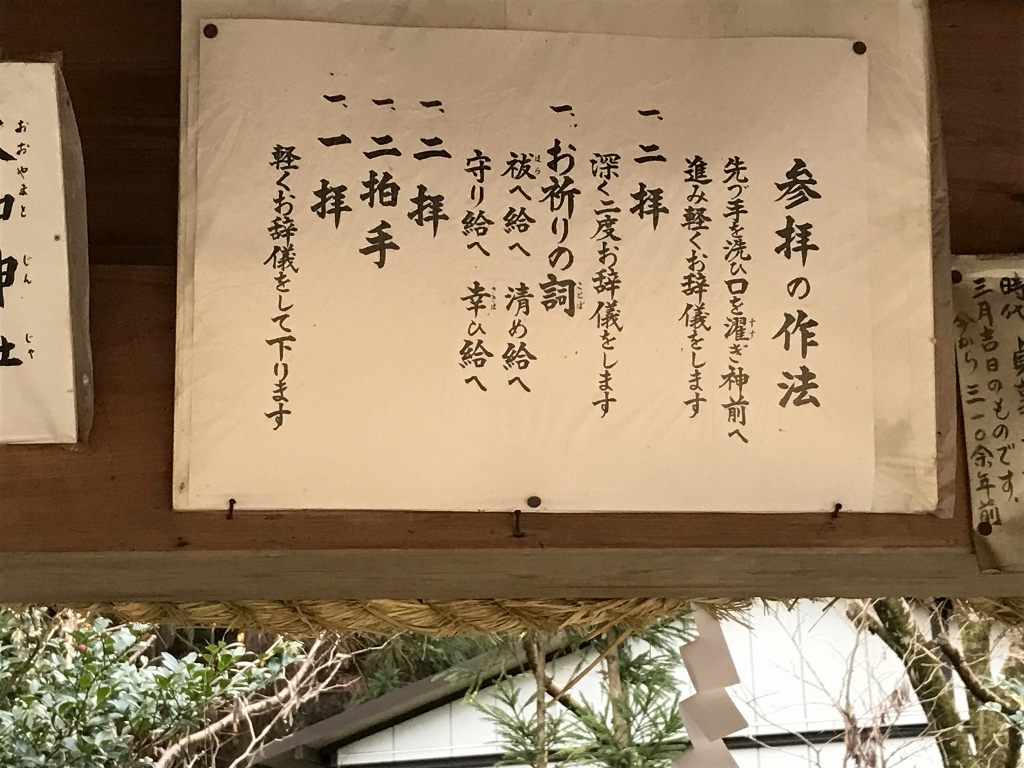 時代
三月吉日のものです。
今から三一〇余年前
参拝の作法
先づ手を洗ひ口を濯ぎ神前へ
進み軽くお辞儀をします
一、二拝
深く二度お辞儀をします
一、お祈りの詞
祓へ給へ 清め給へ
守り給へ 幸ひ給へ
一、二拝
一、二拍手
一、一拝
軽くお辞儀をして下ります
おおやまと じん じゃ
神社